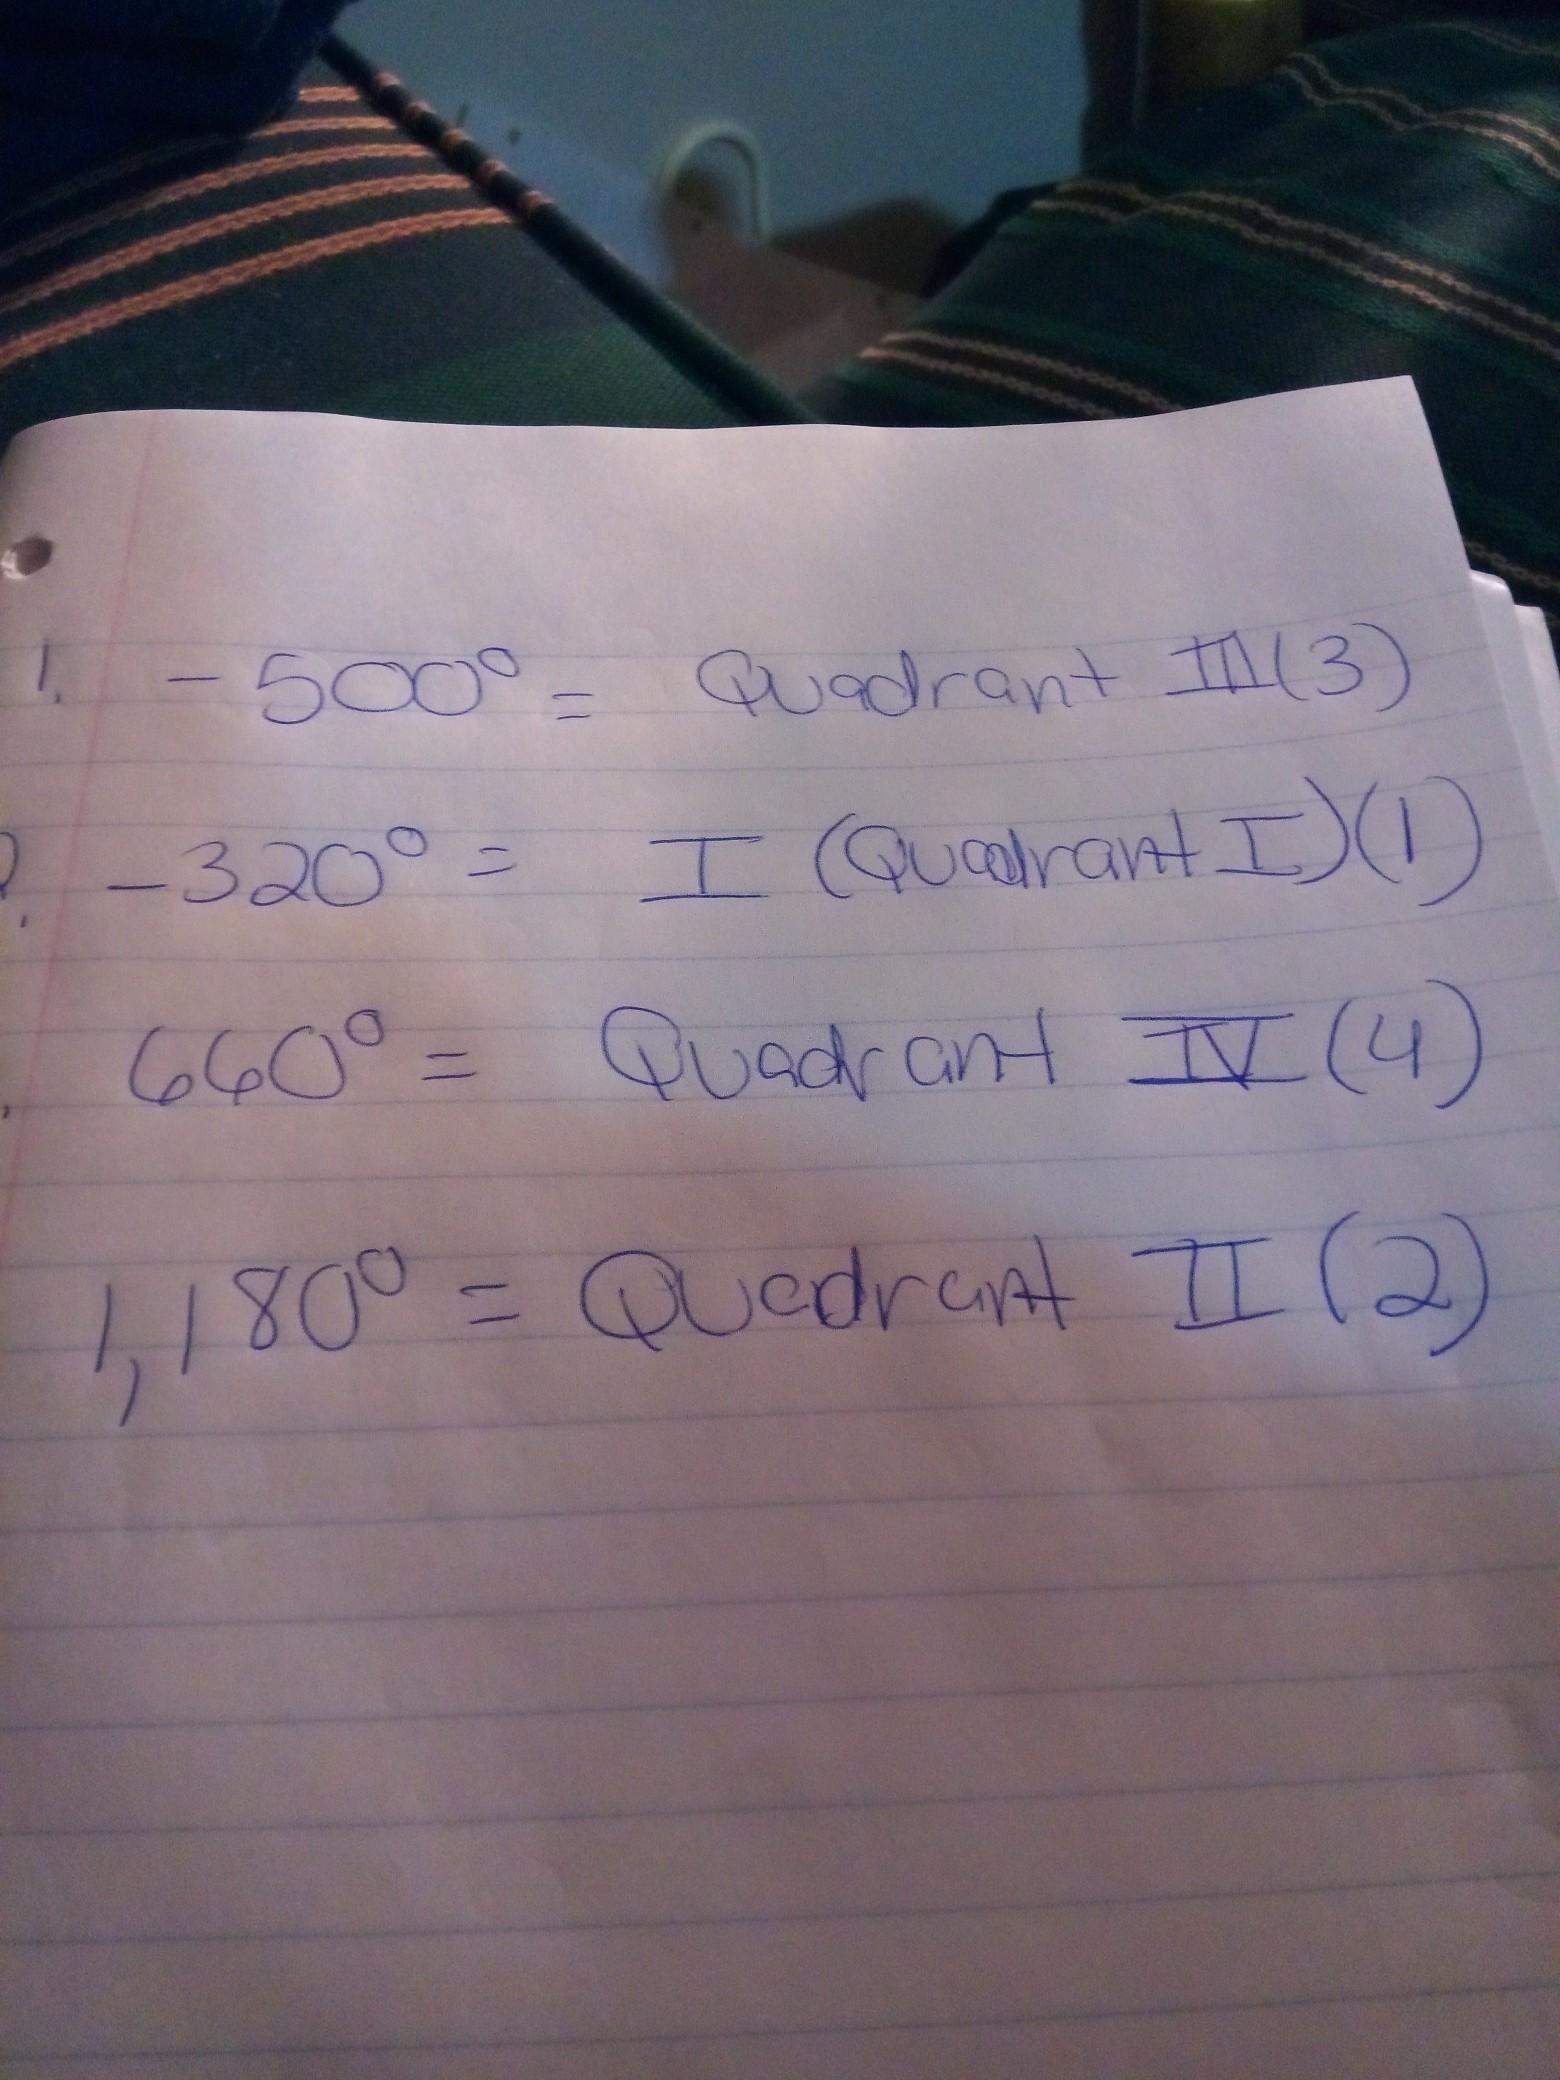 1. -500° = Quadrant III (3)
2. -320° = I (Quadrant I) (1)
. 660° = Quadrant IV (4)
1,180° = Quadrant II (2)